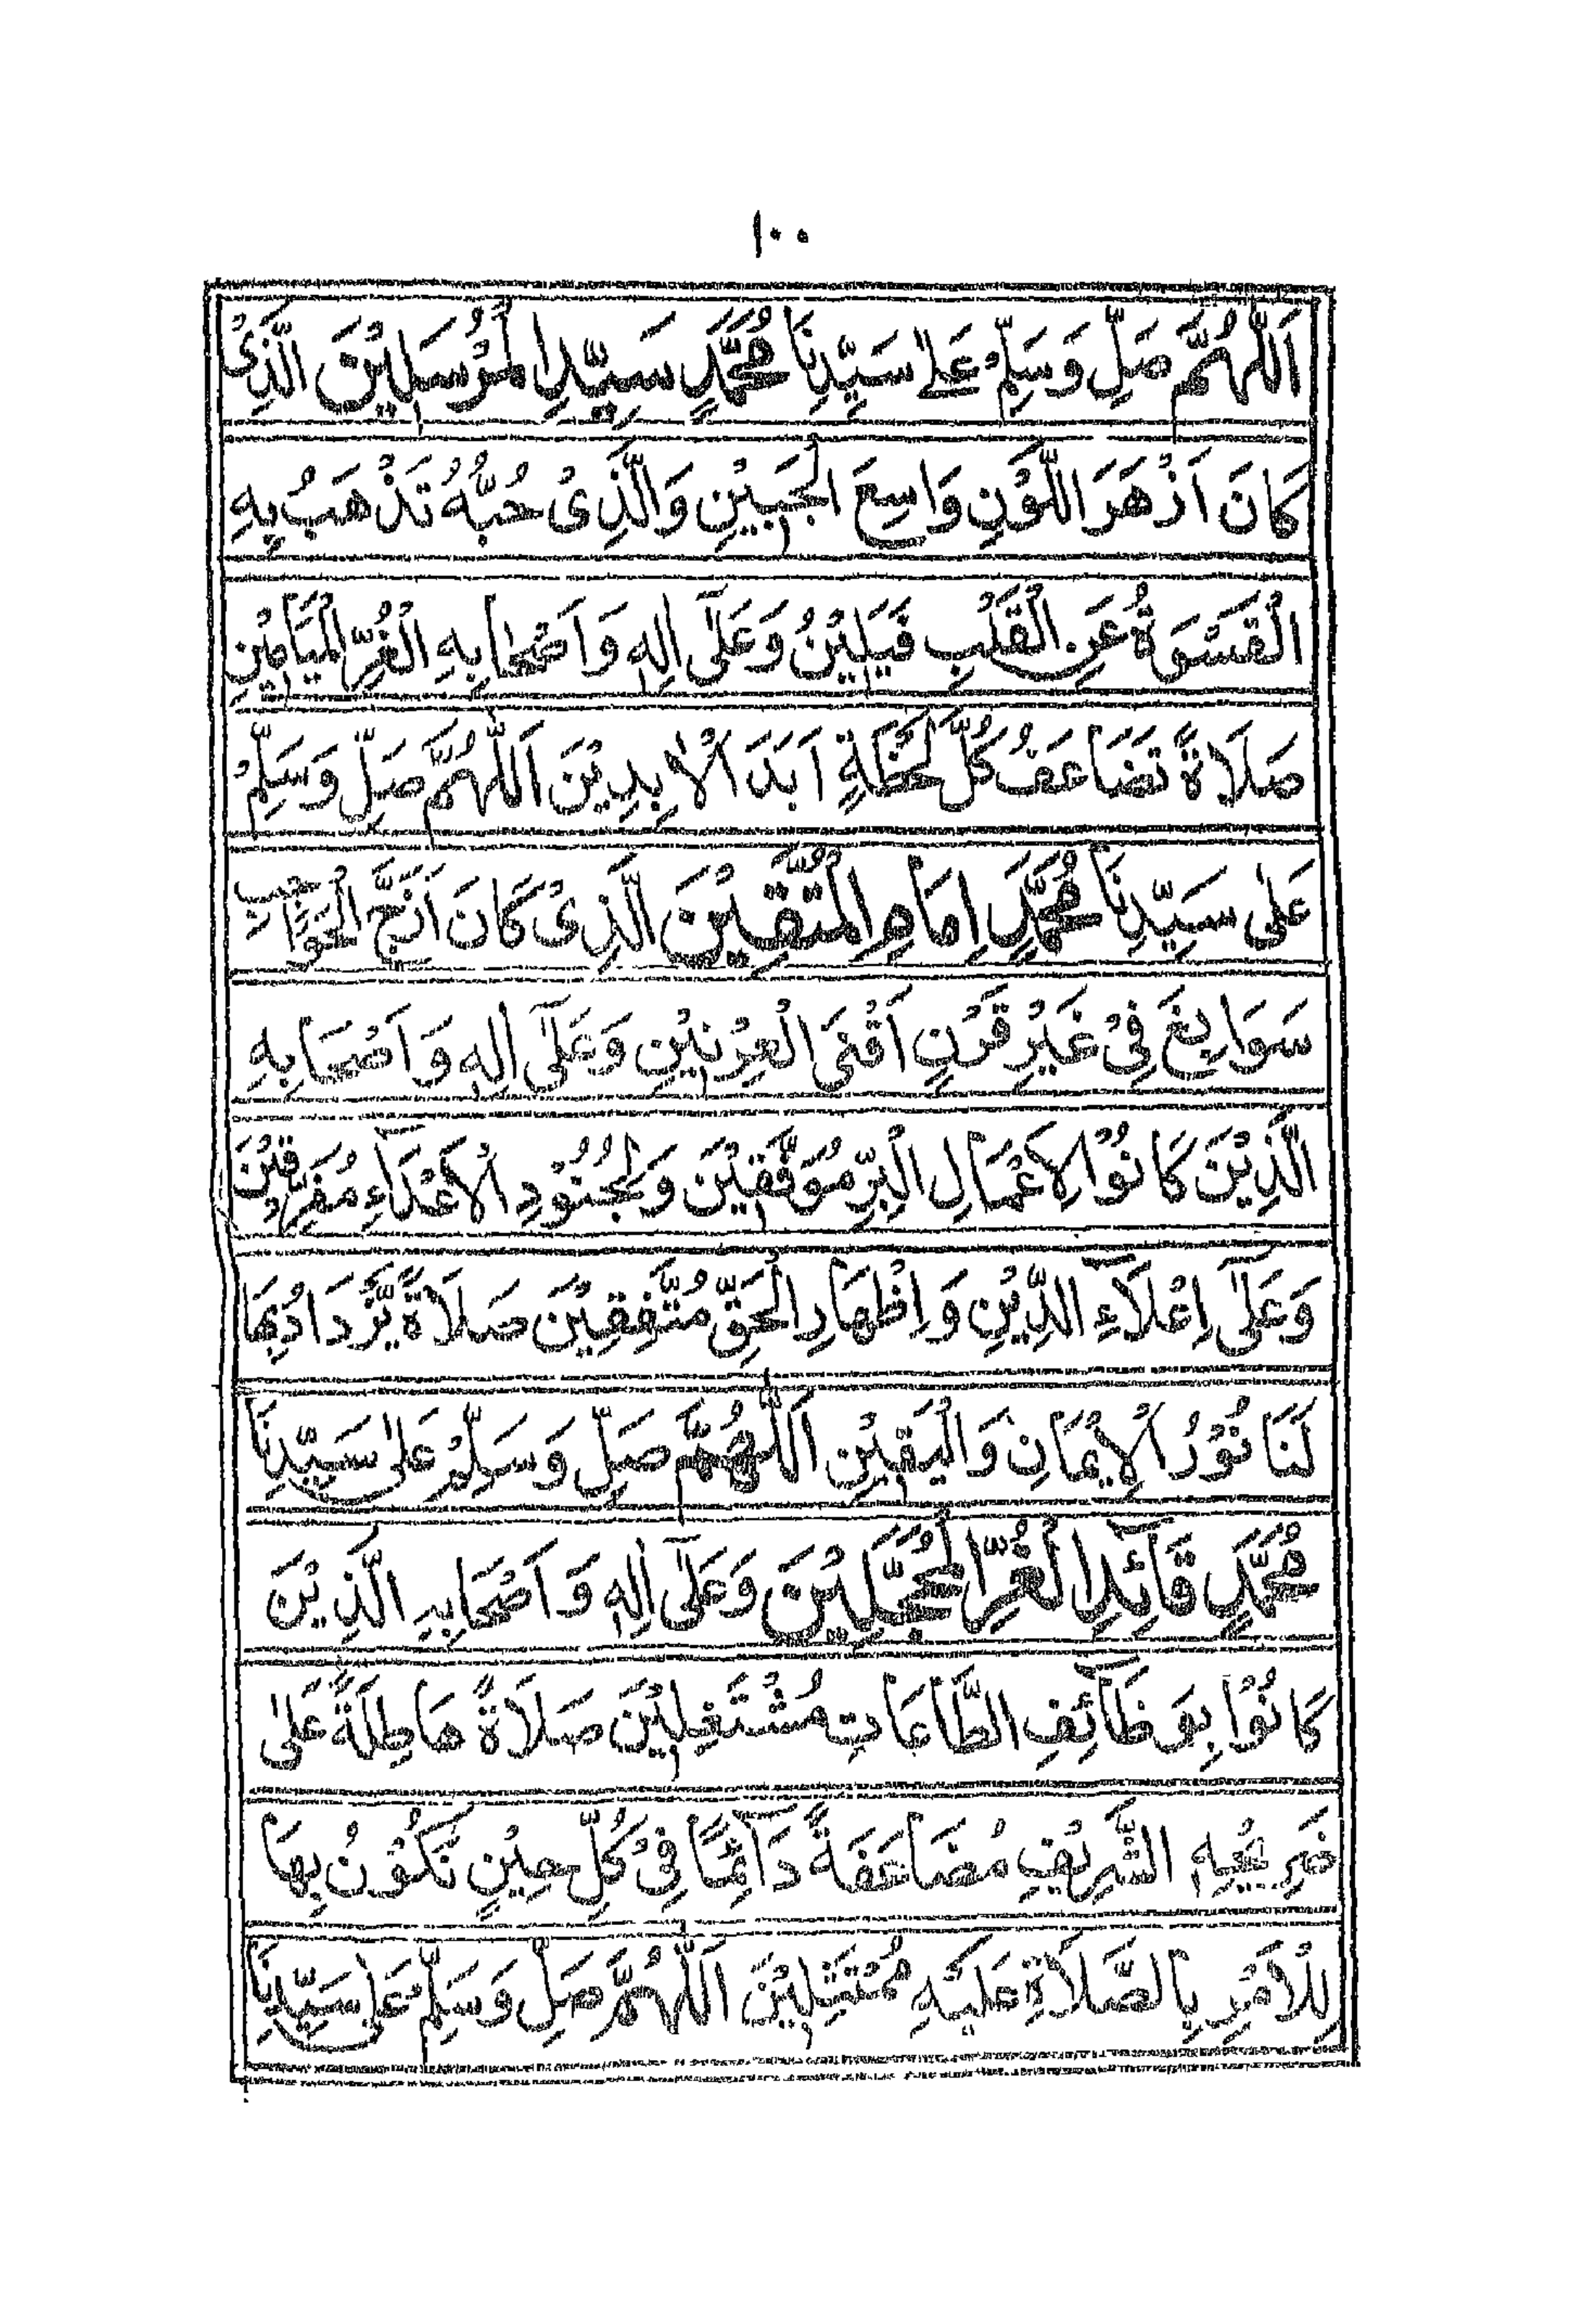 ١٠٠
اَللّٰهُمَّ صَلِّ وَسَلِّمْ عَلٰى سَيِّدِنَا مُحَمَّدٍ سَيِّدِ الْمُرْسَلِيْنَ الَّذِىْ
كَانَ اَزْهَرَ اللَّوْنِ وَاسِعَ الْجَبِيْنِ وَالَّذِىْ حُبُّهُ تَذْهَبُ بِهِ
الْقَسْوَةُ عَنِ الْقَلْبِ فَيَلِيْنُ وَعَلٰٓى اٰلِهٖ وَاَصْحَابِهِ الْغُرِّ الْمَيَامِيْنِ
صَلَاةً تَضَاعَفُ كُلَّ لَحْظَةٍ اَبَدَ الْاٰبِدِيْنَ اَللّٰهُمَّ صَلِّ وَسَلِّمْ
عَلٰى سَيِّدِنَا مُحَمَّدٍ اِمَامِ الْمُتَّقِيْنَ الَّذِىْ كَانَ اَزَجَّ الْحَوَاجِبِ
سَوَابِغَ فِىْ غَيْرِ قَرْنٍ اَقْنَى الْعِرْنِيْنِ وَعَلٰٓى اٰلِهٖ وَاَصْحَابِهِ
الَّذِيْنَ كَانُوْا لِاَعْمَالِ الْبِرِّ مُوَفَّقِيْنَ وَلِجُنُوْدِ الْاَعْدَآءِ مُفَرِّقِيْنَ
وَعَلٰٓى اِعْلَآءِ الدِّيْنِ وَاِظْهَارِ الْحَقِّ مُتَّفِقِيْنَ صَلَاةً يَّزْدَادُ بِهَا
لَنَا نُوْرُ الْاِيْمَانِ وَالْيَقِيْنِ اَللّٰهُمَّ صَلِّ وَسَلِّمْ عَلٰى سَيِّدِنَا
مُحَمَّدٍ قَآئِدِ الْغُرِّ الْمُحَجَّلِيْنَ وَعَلٰٓى اٰلِهٖ وَاَصْحَابِهِ الَّذِيْنَ
كَانُوْا بِوَظَآئِفِ الطَّاعَاتِ مُشْتَغِلِيْنَ صَلَاةً هَاطِلَةً عَلٰى
ضَرِيْحِهِ الشَّرِيْفِ مُضَاعَفَةً دَآئِمًا فِىْ كُلِّ حِيْنٍ نَكُوْنُ بِهَا
لِلْاَمْرِ بِالصَّلَاةِ عَلَيْهِ مُمْتَثِلِيْنَ اَللّٰهُمَّ صَلِّ وَسَلِّمْ عَلٰى سَيِّدِنَا